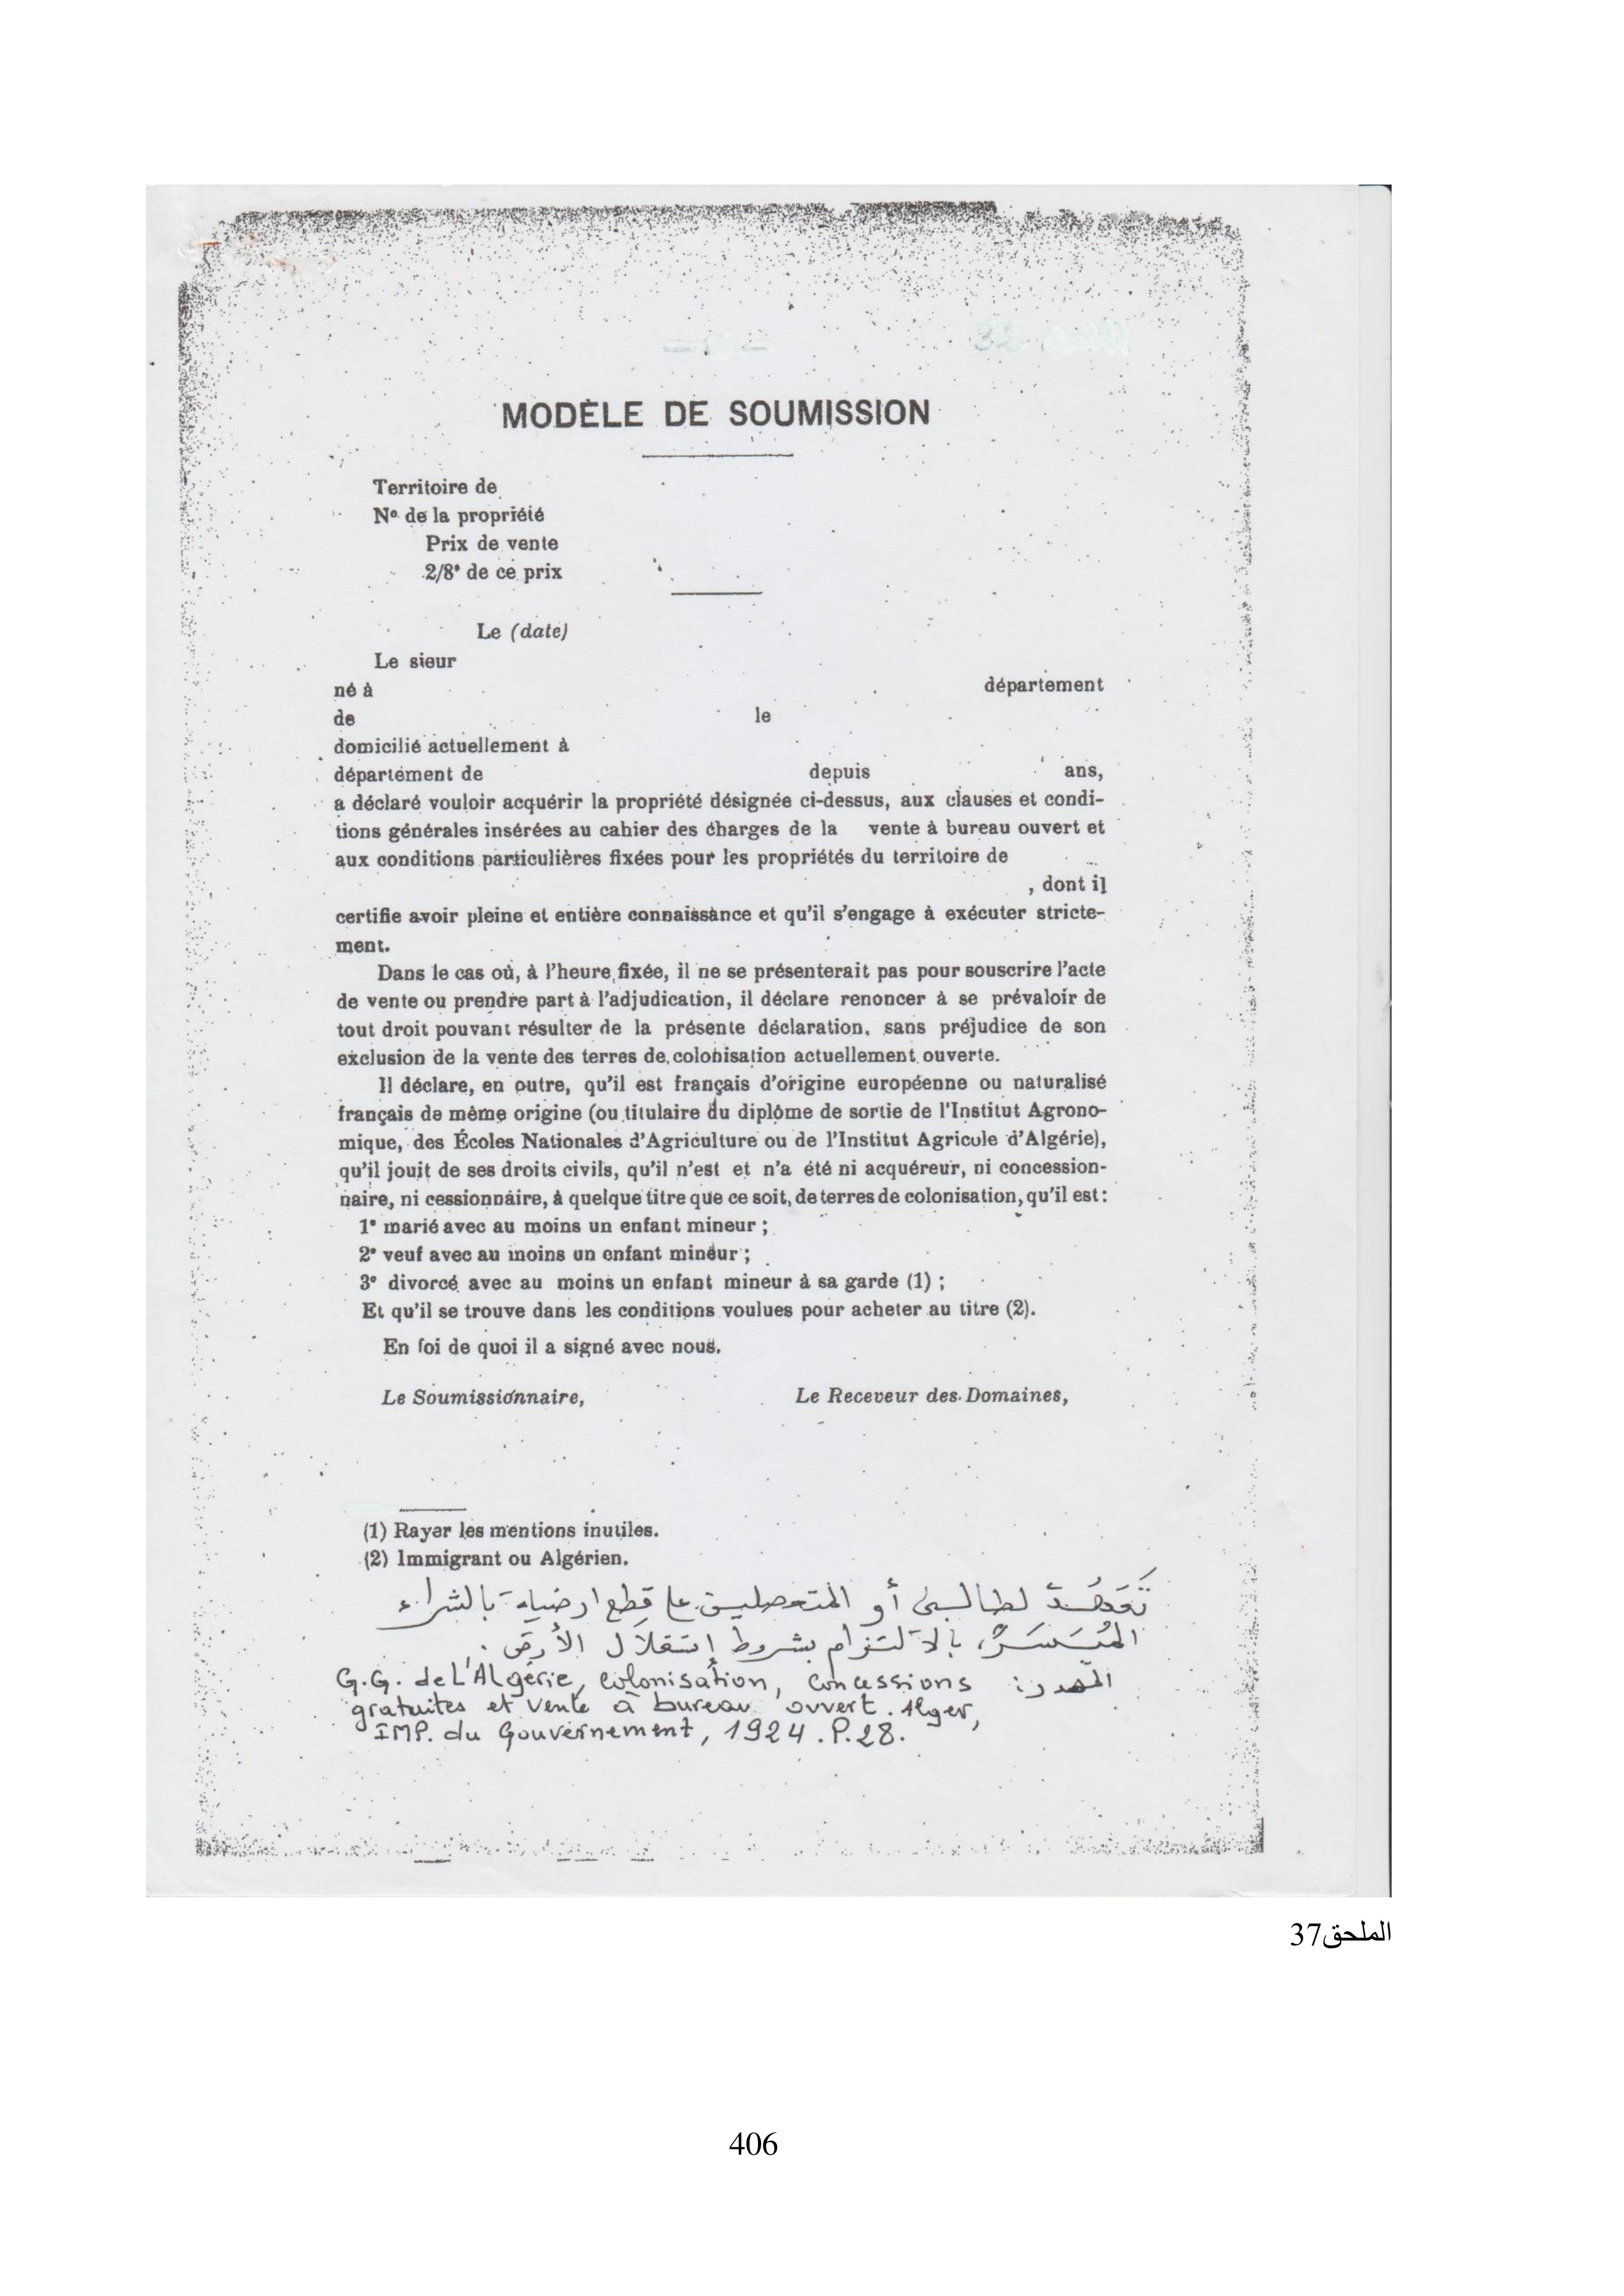 MODÈLE DE SOUMISSION
Territoire de
N° de la propriété
Prix de vente
2/8e de ce prix
Le (date)
Le sieur
né à département
de le
domicilié actuellement à
département de depuis ans,
a déclaré vouloir acquérir la propriété désignée ci-dessus, aux clauses et condi-
tions générales insérées au cahier des charges de la vente à bureau ouvert et
aux conditions particulières fixées pour les propriétés du territoire de
, dont il
certifie avoir pleine et entière connaissance et qu'il s'engage à exécuter stricte-
ment.
Dans le cas où, à l'heure fixée, il ne se présenterait pas pour souscrire l'acte
de vente ou prendre part à l'adjudication, il déclare renoncer à se prévaloir de
tout droit pouvant résulter de la présente déclaration, sans préjudice de son
exclusion de la vente des terres de colonisation actuellement ouverte.
Il déclare, en outre, qu'il est français d'origine européenne ou naturalisé
français de même origine (ou titulaire du diplôme de sortie de l'Institut Agrono-
mique, des Écoles Nationales d'Agriculture ou de l'Institut Agricole d'Algérie),
qu'il jouit de ses droits civils, qu'il n'est et n'a été ni acquéreur, ni concession-
naire, ni cessionnaire, à quelque titre que ce soit, de terres de colonisation, qu'il est :
1° marié avec au moins un enfant mineur ;
2° veuf avec au moins un enfant mineur ;
3° divorcé avec au moins un enfant mineur à sa garde (1) ;
Et qu'il se trouve dans les conditions voulues pour acheter au titre (2).
En foi de quoi il a signé avec nous.
Le Soumissionnaire, Le Receveur des Domaines,
(1) Rayer les mentions inutiles.
(2) Immigrant ou Algérien.
تَعَهُّدٌ لطالبي أو المتحصلين على قطع ارضية بالشراء
المُيَسَّر، بالالتزام بشروط إستغلال الأرض.
المصدر: G.G. de L'Algérie, colonisation, concessions
gratuites et vente à bureau ouvert. Alger,
IMP. du Gouvernement, 1924. P.28.
الملحق37
406